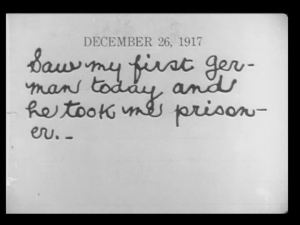 DECEMBER 26, 1917
Saw my first Ger-
man today and
he took me prison-
er.-